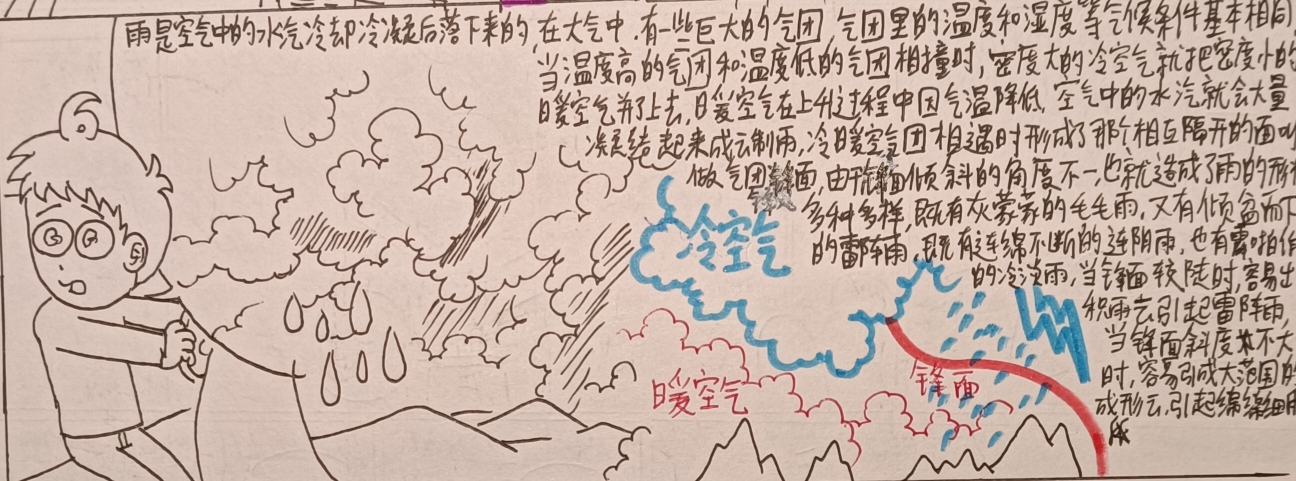 雨是空气中的水汽冷却冷凝后落下来的,在大气中,有一些巨大的气团,气团里的温度和湿度等气候条件基本相同,
当温度高的气团和温度低的气团相撞时,密度大的冷空气就把密度小的
暖空气齐了上去,暖空气在上升过程中因气温降低,空气中的水汽就会大量
凝结起来成云制雨,冷暖空气团相遇时形成了那个相互隔开的面叫
做气团锋面,由于锋面倾斜的角度不一,也就造成了雨的形状
多种多样,既有灰蒙蒙的毛毛雨,又有倾盆而下
的雷阵雨,既有连绵不断的连阴雨,也有雷啪作
的冷淡雨,当锋面较陡时,容易出
积雨云引起雷阵雨,
当锋面斜度不大
时,容易引成大范围的
成形云,引起绵绵细雨
冷空气
暖空气
锋面